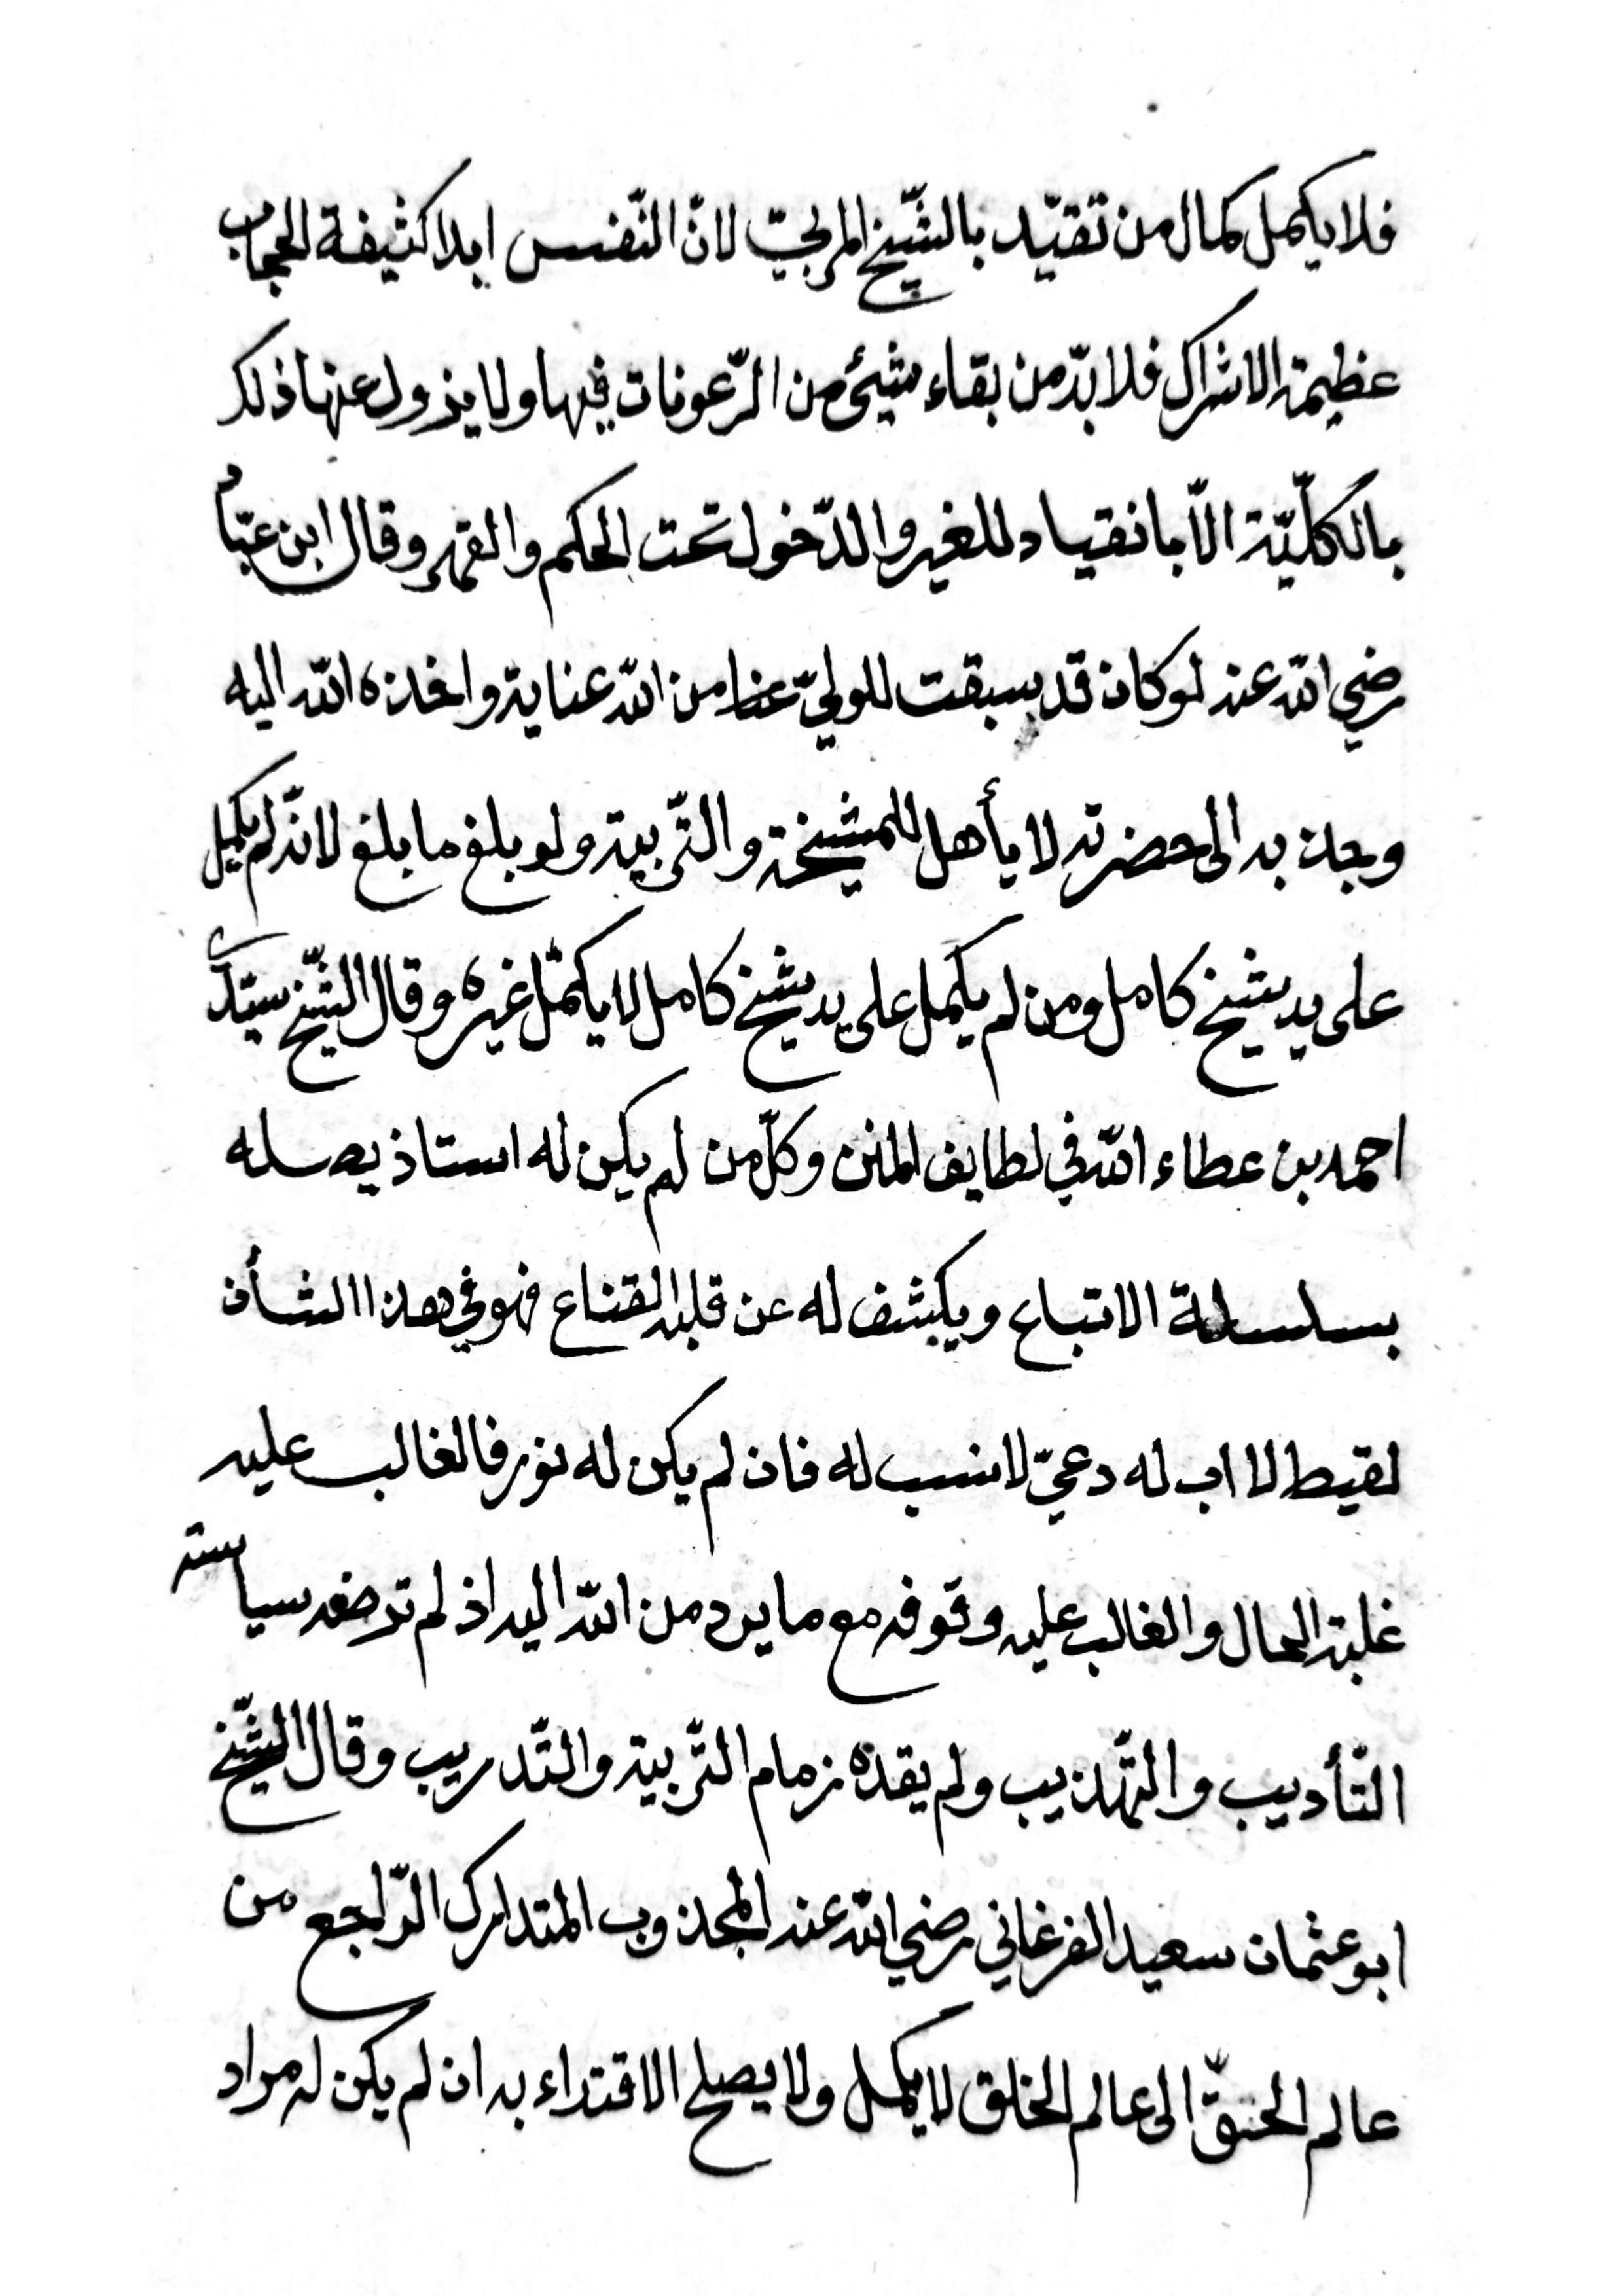 فلا يكمل كمال من تقيّد بالشّيخ المربّي لانّ النّفس ابدا كثيفة الحجاب
عظيمة الاشراك فلا بدّ من بقاء شيئ من الرّعونات فيها ولا يزول عنها ذلك
بالكلّيّة الّا بانقياد للغير والدّخول تحت الحكم والقهر وقال ابن عبّاد
رضي الله عنه لو كان قد سبقت للوليّ من الله عناية واخذه الله اليه
وجذبه الى حضرته لا يأهل للمشيخة والتّربية ولو بلغ ما بلغ لانّه لم يكمل
على يد شيخ كامل ومن لم يكمل على يد شيخ كامل لا يكمّل غيره وقال الشّيخ سيّدي
احمد بن عطاء الله في لطايف المنن وكلّ من لم يكن له استاذ يصله
بسلسلة الاتباع ويكشف له عن قلبه القناع فهو في هذا الشأن
لقيط لا اب له دعيّ لا نسب له فان لم يكن له نور فالغالب عليه
غلبة الحال والغالب عليه وقوفه مع ما يرد من الله اليه اذ لم ترضه سياسته
التّأديب والتّهذيب ولم يقده زمام التّربية والتّدريب وقال الشّيخ
ابو عثمان سعيد الفرغاني رضي الله عنه المجذوب المتدارك الرّاجع من
عالم الحقّ الى عالم الخلق لا يكمل ولا يصلح الاقتداء به ان لم يكن له مراد